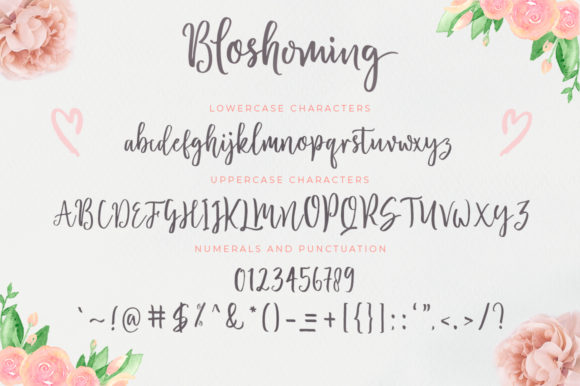 Bloshoming
LOWERCASE CHARACTERS
abcdefghijklmnopqrstuvwxyz
UPPERCASE CHARACTERS
ABCDEFGHIJKLMNOPQRSTUVWXYZ
NUMERALS AND PUNCTUATION
0123456789
`~!@#$%^&*()-=+[{}];:‘”,<.>/?